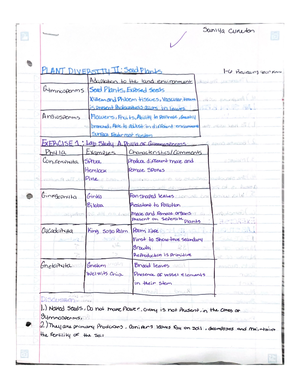 Saniya Cureton
PLANT DIVERSITY II: Seed Plants
Adaptation to the land environment
Gymnosperms
Seed Plants, Exposed Seeds
Xylem and Phloem tissues, Vascular tissue
is present
Angiosperms
Flowers, Fruits, Ability to
around. Able to in different environment
Surface
EXERCISE 1: Lab Study A. Phyla of Gymnosperms
Phyla
Examples
Characteristics/Comments
Coniferophyta
Spruce
Hemlock
Pine
Produce different male and
Female Strobili
Ginkgophyta
Ginkgo
Biloba
Fan shaped leaves
Resistant to Pollution
Male and Female organs
present on separate
plants
Cycadophyta
King Sago Palm
Palm like
First to show true secondary
Growth
Reproduction is primitive
Gnetophyta
Gnetum
Welwitschia
Broad leaves
Presence of vessel elements
in their stem
Discussion:
1.) Naked Seeds, Do not have flower, Ovary is not Present, in the case of
Gymnosperms.
2.) They are primary Producers. Conifers leaves fall on soil, decompose and maintains
the fertility of the soil